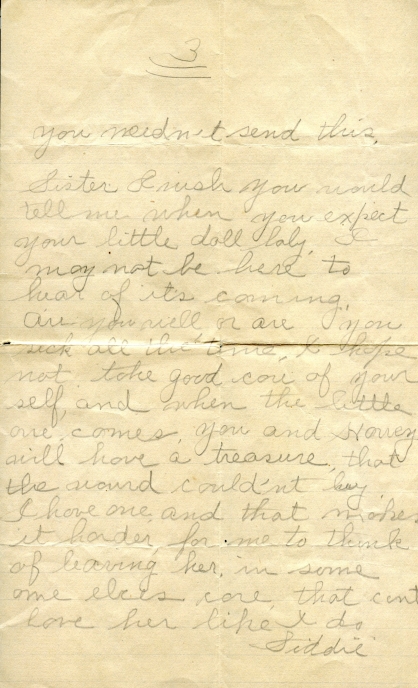 3
you needn't send this.
Sister I wish you would
tell me when you expect
your little doll baby. I
may not be here to
hear of its coming.
Are you well or are you
sick all the time, I hope
not. take good care of your
self, and when the little
one comes, you and Honey
will have a treasure, that
the world could'nt buy.
I have one, and that makes
it harder for me to think
of leaving her, in some
one elces care, that cint
love her like I do
Siddie